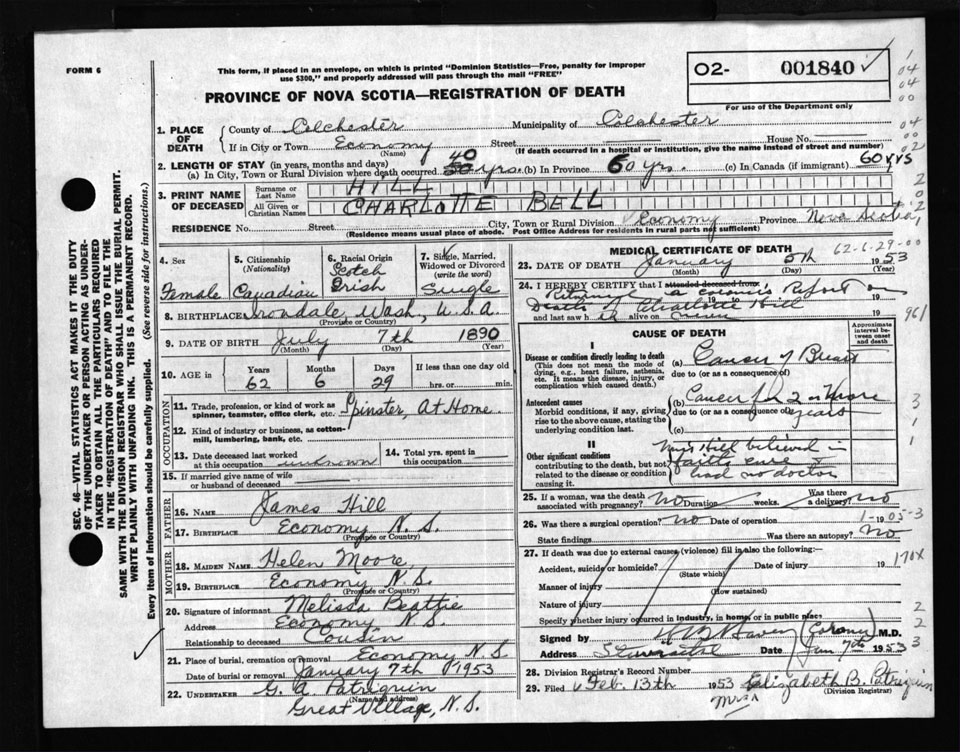 FORM 6
This form, if placed in an envelope, on which is printed "Dominion Statistics—Free, penalty for improper
use $300," and properly addressed will pass through the mail "FREE"
02- 001840 ✓
PROVINCE OF NOVA SCOTIA—REGISTRATION OF DEATH
For use of the Department only
1. PLACE OF DEATH { County of Colchester Municipality of Colchester
If in City or Town Economy Street House No.
(Name) (If death occurred in a hospital or institution, give the name instead of street and number)
2. LENGTH OF STAY (in years, months and days)
(a) In City, Town or Rural Division where death occurred 40 yrs. (b) In Province 60 yrs. (c) In Canada (if immigrant) 60 yrs
3. PRINT NAME OF DECEASED { Surname or Last Name HILL
All Given or Christian Names CHARLOTTE BELL
RESIDENCE No. Street City, Town or Rural Division Economy Province Nova Scotia
(Residence means usual place of abode. Post Office Address for residents in rural parts not sufficient)
4. Sex Female
5. Citizenship (Nationality) Canadian
6. Racial Origin Scotch Irish
7. Single, Married, Widowed or Divorced (write the word) Single
8. BIRTHPLACE Irondale, Wash, U.S.A.
(Province or Country)
9. DATE OF BIRTH July 7th 1890
(Month) (Day) (Year)
10. AGE in Years 62 Months 6 Days 29 If less than one day old hrs. or min.
OCCUPATION
11. Trade, profession, or kind of work as spinner, teamster, office clerk, etc. Spinster, At Home
12. Kind of industry or business, as cotton-mill, lumbering, bank, etc.
13. Date deceased last worked at this occupation unknown
14. Total yrs. spent in this occupation
15. If married give name of wife or husband of deceased
FATHER
16. NAME James Hill
17. BIRTHPLACE Economy N.S.
(Province or Country)
MOTHER
18. MAIDEN NAME Helen Moore
19. BIRTHPLACE Economy N.S.
(Province or Country)
20. Signature of informant Melissa Beattie
Address Economy N.S.
Relationship to deceased Cousin
21. Place of burial, cremation or removal Economy N.S
Date of burial or removal January 7th 1953
22. UNDERTAKER G. A. Patriquin
(Name and Address)
Great Village, N.S.
MEDICAL CERTIFICATE OF DEATH 62-6-29-00
23. DATE OF DEATH January 5th 1953
(Month) (Day) (Year)
24. I HEREBY CERTIFY that I attended deceased from:
a coroner's Report on
Death Charlotte Hill
19 19
and last saw h alive on 19 961
CAUSE OF DEATH
Approximate interval between onset and death
I
Disease or condition directly leading to death (a) Cancer of Breast
(This does not mean the mode of dying, e.g., heart failure, asthenia, etc. It means the disease, injury, or complication which caused death.)
due to (or as a consequence of)
Antecedent causes (b) Cancer for 2 or more years
Morbid conditions, if any, giving rise to the above cause, stating the underlying condition last.
due to (or as a consequence of)
(c)
II
Other significant conditions contributing to the death, but not related to the disease or condition causing it.
Miss Hill believed in
faith cure
had no doctor
25. If a woman, was the death associated with pregnancy? No Duration weeks. Was there a delivery? No
26. Was there a surgical operation? No Date of operation 19
State findings Was there an autopsy? No
27. If death was due to external causes (violence) fill in also the following:
Accident, suicide or homicide? Date of injury 19 170X
(State which)
Manner of injury
(How sustained)
Nature of injury
Specify whether injury occurred in industry, in home, or in public place
Signed by (Coroner) M.D.
Address Stewiacke Date Jan 7th 1953
28. Division Registrar's Record Number
29. Filed Feb. 13th 1953 Mrs. Elizabeth B. Patriquin
(Division Registrar)
SEC. 46—VITAL STATISTICS ACT MAKES IT THE DUTY
OF THE UNDERTAKER OR PERSON ACTING AS UNDER-
TAKER TO OBTAIN ALL THE PARTICULARS REQUIRED
IN THE "REGISTRATION OF DEATH" AND TO FILE THE
SAME WITH THE DIVISION REGISTRAR WHO SHALL ISSUE THE BURIAL PERMIT.
WRITE PLAINLY WITH UNFADING INK. THIS IS A PERMANENT RECORD.
Every item of information should be carefully supplied. (See reverse side for instructions.)